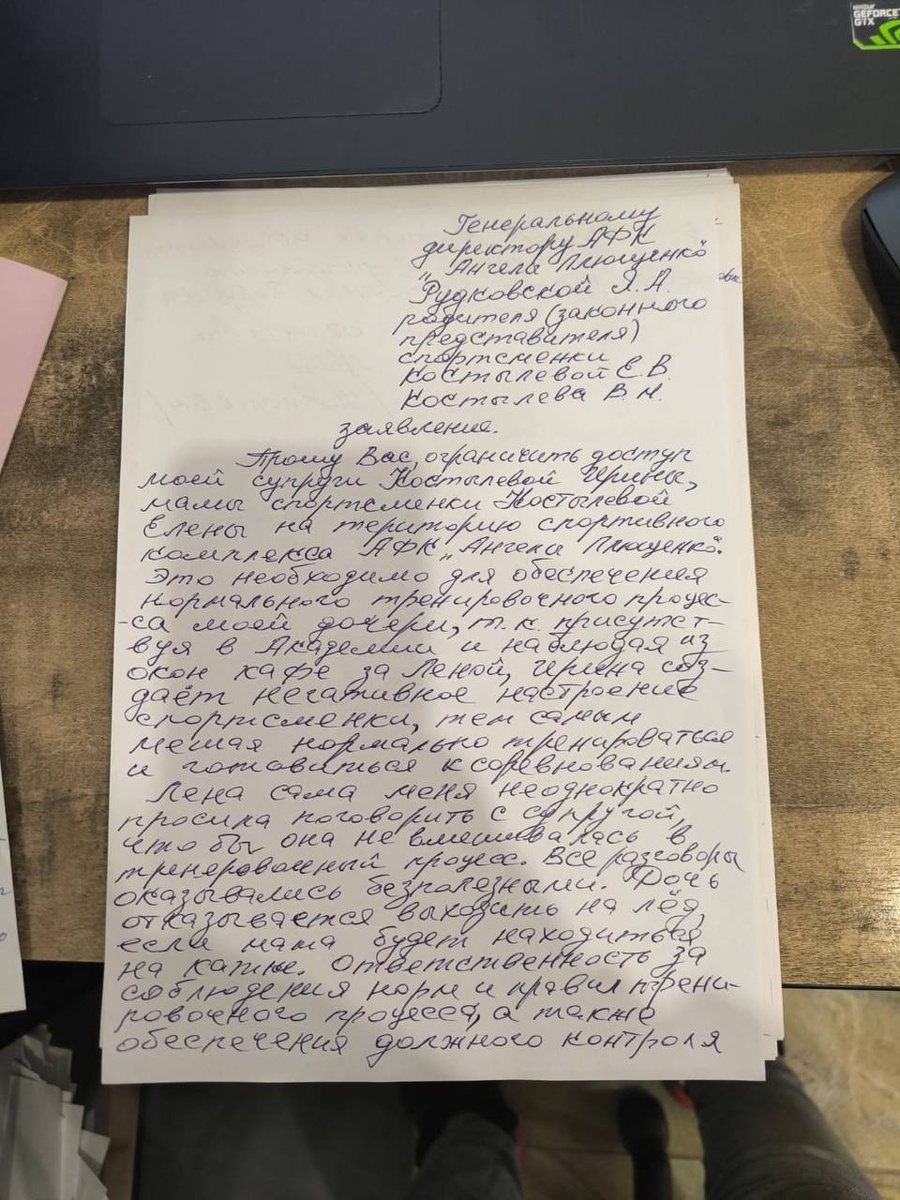 NVIDIA
GEFORCE
GTX
Генеральному
директору АФК
„Ангелы Плющенко"
Рудковской Я.А.
родителя (законного
представителя)
спортсменки
Костылевой Е.В.
Костылева В.Н.
заявление.
Прошу Вас, ограничить доступ
моей супруги Костылевой Ирины,
мамы спортсменки Костылевой
Елены на територию спортивного
комплекса АФК „Ангелы Плющенко".
Это необходимо для обеспечения
нормального тренировочного процес-
-са моей дочери, т.к. присутст-
вуя в Академии и наблюдая из
окон кафе за Леной, Ирина соз-
даёт негативное настроение
спортсменки, тем самым
мешая нормально тренироваться
и готовиться к соревнованиям.
Лена сама меня неоднократно
просила поговорить с супругой,
что бы она не вмешивалась в
тренеровочный процесс. Все разговоры
оказывались безполезными. Дочь
отказывается выходить на лёд,
если мама будет находиться
на катке. Ответственность за
соблюдения норм и правил трени-
ровочного процесса, а также
обеспечения должного контроля